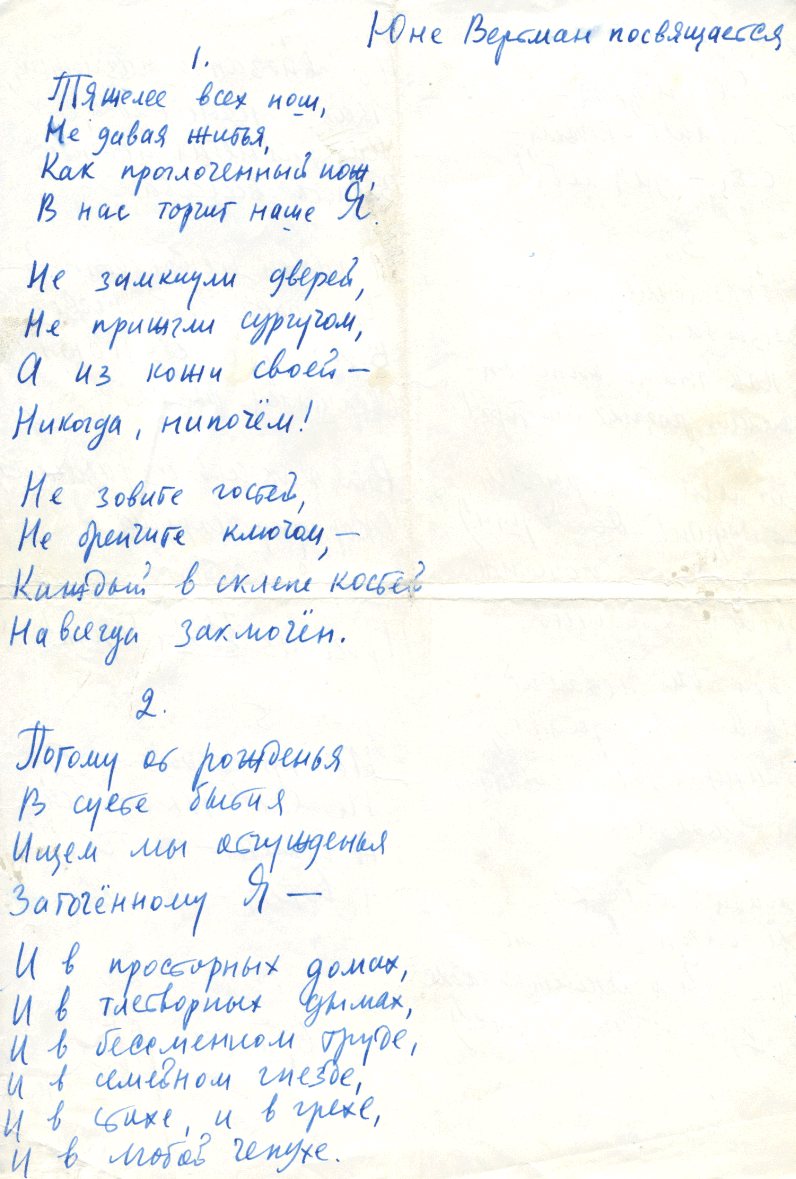 Юне Вертман посвящается
1.
Тяжелее всех нош,
Не давая житья,
Как проглоченный нож,
В нас торчит наше Я.
Не замкнули дверей,
Не прижгли сургучом,
А из кожи своей —
Никогда, нипочём!
Не зовите гостей,
Не бренчите ключом, —
Каждый в склепе костей
Навсегда заключён.
2.
Потому от рожденья
В суете бытия
Ищем мы отчужденья
Заточённому Я —
И в просторных домах,
И в тлетворных дымах,
И в бессменном труде,
И в семейном гнезде,
И в стихе, и в грехе,
И в любой чепухе.